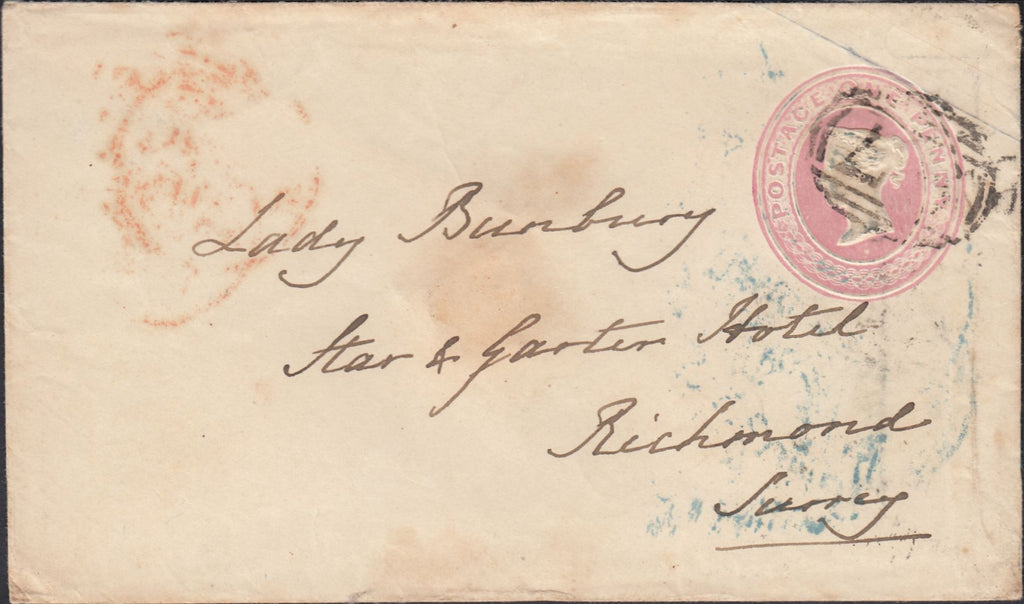 POSTAGE ONE PENNY
Lady Bunbury
Star & Garter Hotel
Richmond
Surrey